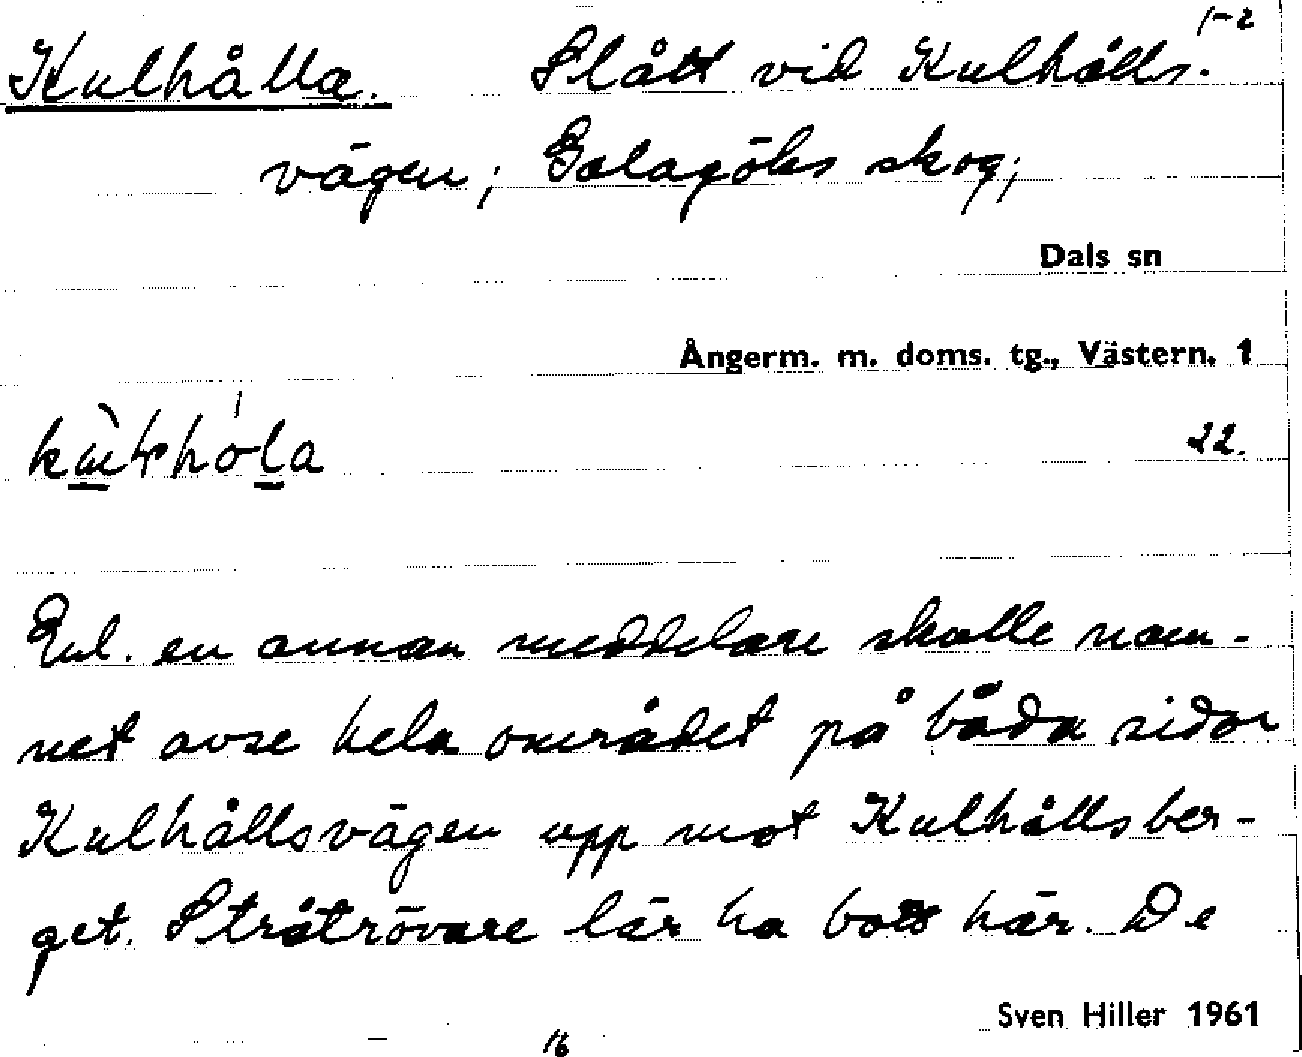 1-2
Kulhålla. Slått vid Kulhålls-
vägen; skog;
Dals sn
Ångerm. m. doms. tg., Västern. 1
22.
Enl. en annan meddelare skulle nam-
net avse hela området på båda sidor
Kulhållsvägen upp mot Kulhållsber-
get. Stråtrövare lär ha bott här. De
Sven Hiller 1961
16